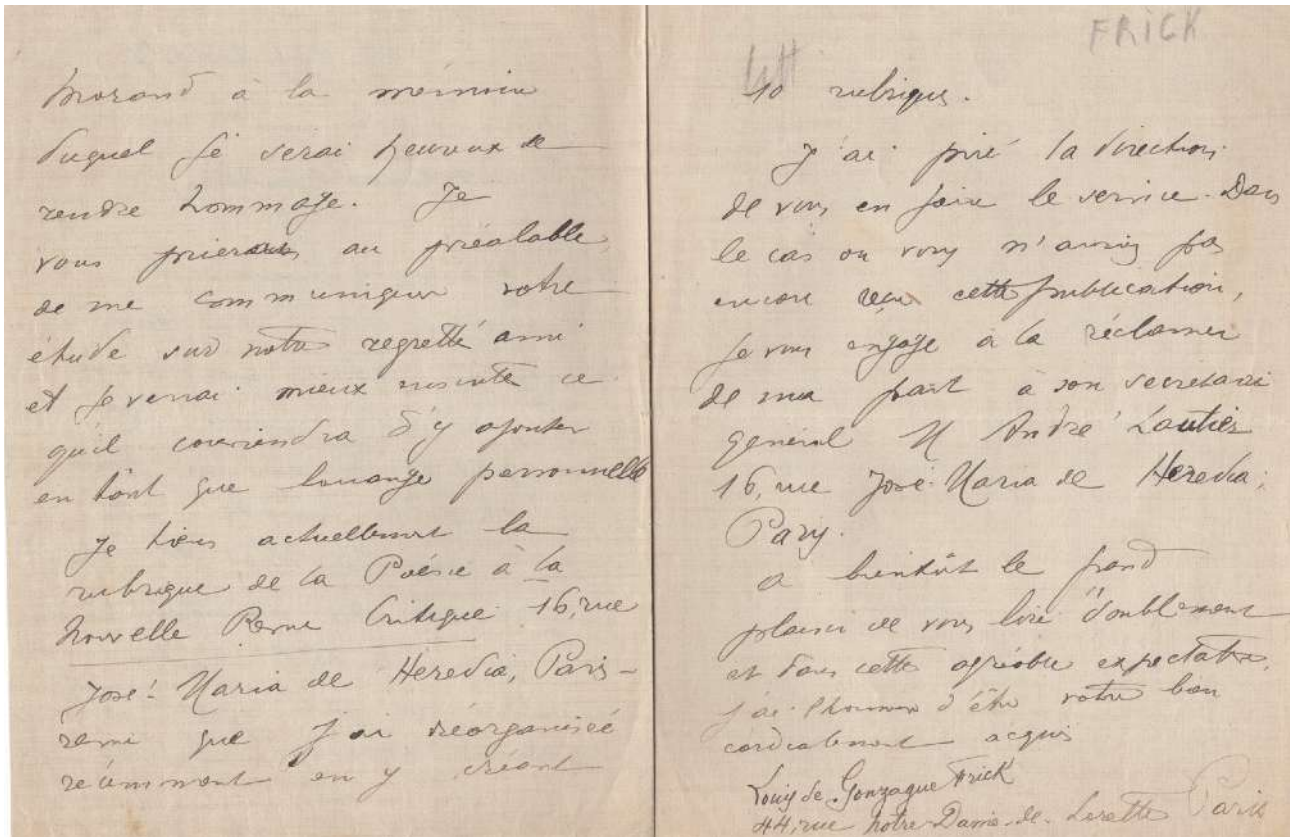 Morand à la mémoire
duquel je serai heureux de
rendre hommage. Je
vous prierais au préalable
de me communiquer votre
étude sur notre regretté ami
et je verrai mieux ensuite ce
qu'il conviendra d'y ajouter
en tant que louange personnelle
Je tiens actuellement la
rubrique de la Poésie à la
Nouvelle Revue Critique 16, rue
José-Maria de Heredia, Paris-
revue que j'ai réorganisé
récemment en y créant
FRICK
10 rubriques.
J'ai prié la direction
de vous en faire le service. Dans
le cas ou vous n'auriez pas
encore reçu cette publication,
je vous engage à la réclamer
de ma part à son secrétaire
général M André Lautier
16, rue José-Maria de Heredia,
Paris.
a bientôt le grand
plaisir de vous lire doublement
et dans cette agréable expectative,
j'ai l'honneur d'être votre bien
cordialement acquis
Louis de Gonzague Frick
44, rue Notre-Dame-de-Lorette Paris